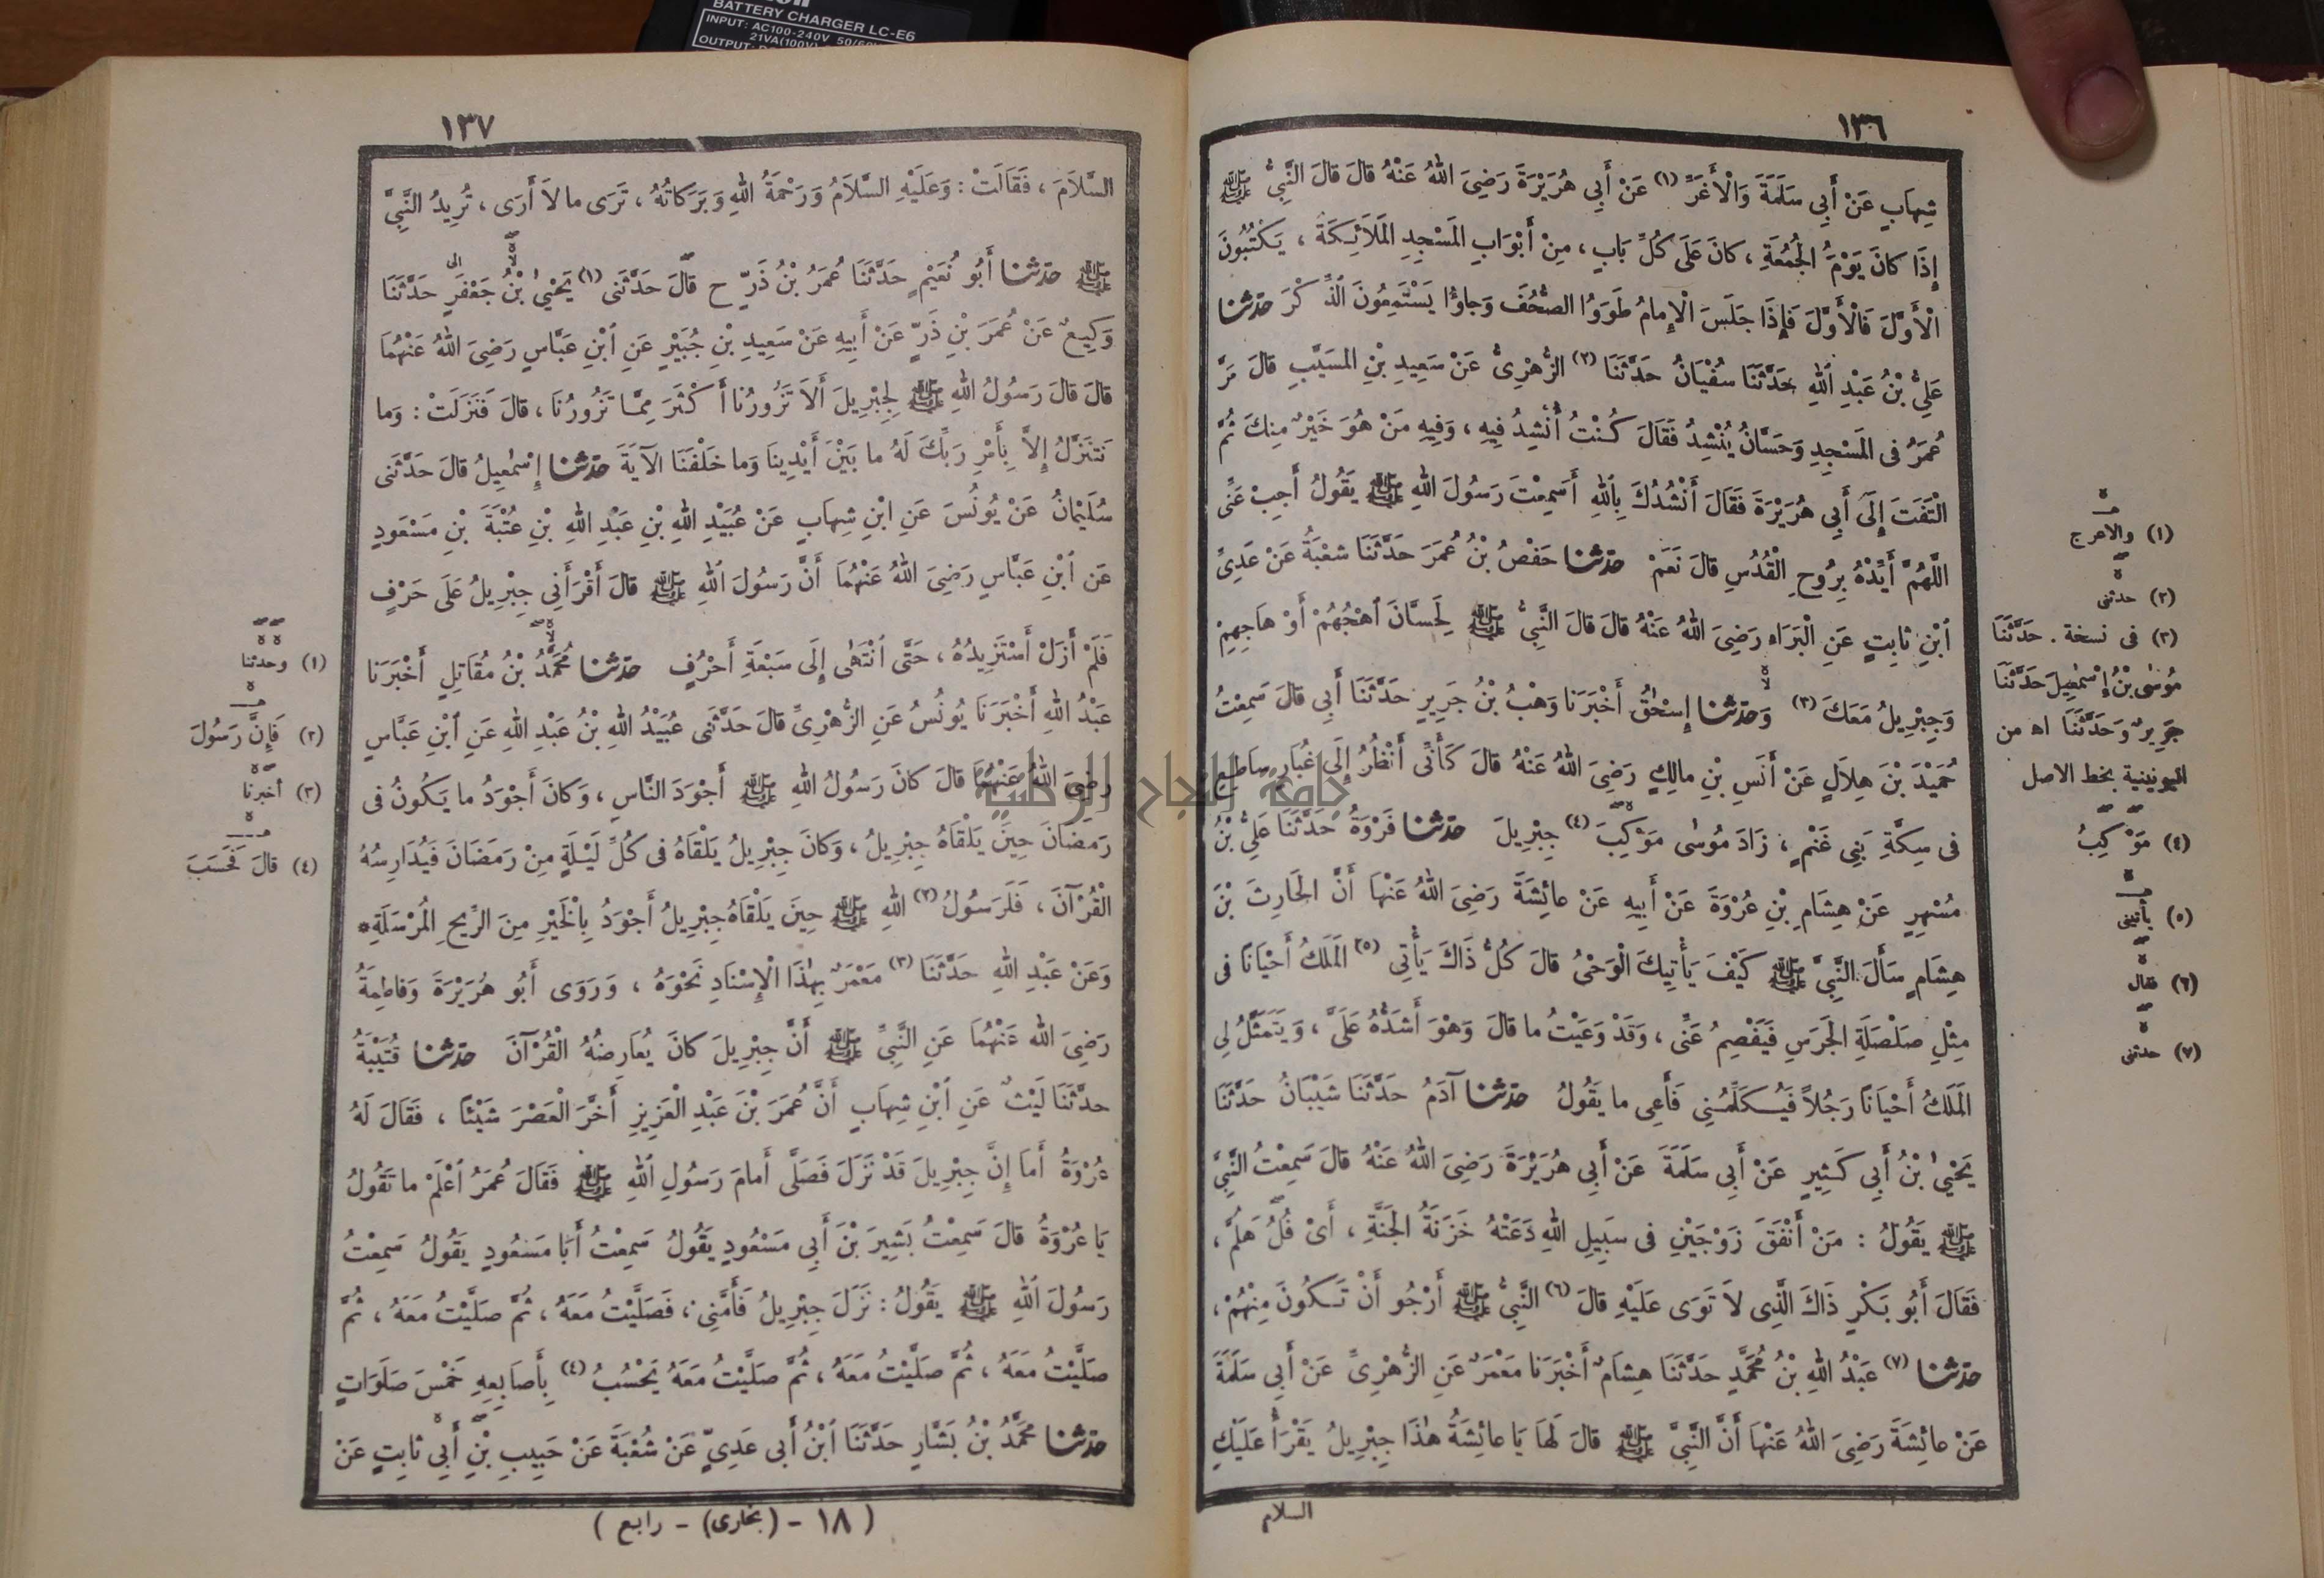 BATTERY CHARGER LC-E6
INPUT: AC100-240V 50/60
21VA(100V)
OUTPUT:
١٣٦
شِهَابٍ عَنْ أَبِي سَلَمَةَ وَالْأَغَرِّ (١) عَنْ أَبِي هُرَيْرَةَ رَضِيَ اللهُ عَنْهُ قالَ قالَ النَّبِيُّ ﷺ
إِذَا كانَ يَوْمُ الجُمُعَةِ ، كانَ عَلَى كُلِّ بَابٍ ، مِنْ أَبْوَابِ المَسْجِدِ المَلَائِكَةُ ، يَكْتُبُونَ
الْأَوَّلَ فَالْأَوَّلَ فَإِذَا جَلَسَ الْإِمامُ طَوَوُا الصُّحُفَ وَجاؤُا يَسْتَمِعُونَ الذِّكْرَ حَدَّثَنَا
عَلِيُّ بْنُ عَبْدِ اللهِ حَدَّثَنَا سُفْيَانُ حَدَّثَنَا (٢) الزُّهْرِىُّ عَنْ سَعِيدِ بْنِ المسَيَّبِ قالَ مَرَّ
عُمَرُ فى المَسْجِدِ وَحَسَّانُ يُنْشِدُ فَقَالَ كُنْتُ أُنْشِدُ فِيهِ ، وَفِيهِ مَنْ هُوَ خَيْرٌ مِنْكَ ثُمَّ
الْتَفَتَ إِلَى أَبِي هُرَيْرَةَ فَقَالَ أَنْشُدُكَ بِاللهِ أَسَمِعْتَ رَسُولَ اللهِ ﷺ يَقُولُ أَجِبْ عَنِّى
اللَّهُمَّ أَيِّدْهُ بِرُوحِ الْقُدُسِ قالَ نَعَمْ حَدَّثَنَا حَفْصُ بْنُ عُمَرَ حَدَّثَنَا شعْبَةُ عَنْ عَدِىِّ
ابْنِ ثابِتٍ عَنِ الْبَرَاءِ رَضِىَ اللهُ عَنْهُ قالَ قالَ النَّبِيُّ ﷺ لِحَسَّانَ اهْجُهُمْ أَوْ هاجِهِمْ
وَجِبْرِيلُ مَعَكَ (٣) وَحَدَّثَنَا إِسْحٰقُ أَخْبَرَنَا وَهْبُ بْنُ جَرِيرٍ حَدَّثَنَا أَبِى قالَ سَمِعْتُ
حُمَيْدَ بْنَ هِلَالٍ عَنْ أَنَسِ بْنِ مالِكٍ رَضِىَ اللهُ عَنْهُ قالَ كَأَنِّى أَنْظُرُ إِلَى غُبَارٍ ساطِعٍ
فى سِكَّةِ بَنِى غَنْمٍ ، زَادَ مُوسٰى مَوْكِبَ (٤) جِبْرِيلَ حَدَّثَنَا فَرْوَةُ حَدَّثَنَا عَلِيُّ بْنُ
مُسْهِرٍ عَنْ هِشَامِ بْنِ عُرْوَةَ عَنْ أَبِيهِ عَنْ عائِشَةَ رَضِىَ اللهُ عَنْهَا أَنَّ الحَارِثَ بْنَ
هِشَامٍ سَأَلَ النَّبِيَّ ﷺ كَيْفَ يَأْتِيكَ الْوَحْىُ قالَ كُلُّ ذَاكَ يَأْتِى (٥) المَلَكُ أَحْيَانًا فى
مِثْلِ صَلْصَلَةِ الجَرَسِ فَيَفْصِمُ عَنِّى ، وَقَدْ وَعَيْتُ ما قالَ وَهْوَ أَشَدُّهُ عَلَىَّ ، وَيَتَمَثَّلُ لِى
المَلَكُ أَحْيَانًا رَجُلاً فَيُكَلِّمُنِى فَأَعِى ما يَقُولُ حَدَّثَنَا آدَمُ حَدَّثَنَا شَيْبَانُ حَدَّثَنَا
يَحْيٰى بْنُ أَبِي كَثِيرٍ عَنْ أَبِي سَلَمَةَ عَنْ أَبِي هُرَيْرَةَ رَضِىَ اللهُ عَنْهُ قالَ سَمِعْتُ النَّبِيَّ
ﷺ يَقُولُ : مَنْ أَنْفَقَ زَوْجَيْنِ فى سَبِيلِ اللهِ دَعَتْهُ خَزَنَةُ الجَنَّةِ ، أَىْ فُلُ هَلُمَّ ،
فَقَالَ أَبُو بَكْرٍ ذَاكَ الَّذِى لاَ تَوَى عَلَيْهِ قالَ (٦) النَّبِيُّ ﷺ أَرْجُو أَنْ تَكُونَ مِنْهُمْ ،
حَدَّثَنَا (٧) عَبْدُ اللهِ بْنُ مُحَمَّدٍ حَدَّثَنَا هِشَامٌ أَخْبَرَنَا مَعْمَرٌ عَنِ الزُّهْرِىِّ عَنْ أَبِى سَلَمَةَ
عَنْ عائِشَةَ رَضِىَ اللهُ عَنْهَا أَنَّ النَّبِيَّ ﷺ قالَ لَهَا يَا عائِشَةُ هٰذَا جِبْرِيلُ يَقْرَأُ عَلَيْكِ
السلام
(١) والاعرج
(٢) حدثنى
(٣) فى نسخة . حَدَّثَنَا
مُوسٰى بْنُ إِسْمٰعِيلَ حَدَّثَنَا
جَرِيرٌ وَحَدَّثَنَا اه من
اليونينية بخط الاصل
(٤) مَوْكِبُ
(٥) يأتينى
(٦) فقال
(٧) حدثنى
١٣٧
السَّلاَمَ ، فَقَالَتْ : وَعَلَيْهِ السَّلاَمُ وَرَحْمَةُ اللهِ وَبَرَكاتُهُ ، تَرَى ما لاَ أَرَى ، تُرِيدُ النَّبِيَّ
ﷺ حَدَّثَنَا أَبُو نُعَيْمٍ حَدَّثَنَا عُمَرُ بْنُ ذَرٍّ ح قالَ حَدَّثَنى (١) يَحْيٰى بْنُ جَعْفَرٍ حَدَّثَنَا
وَكِيعٌ عَنْ عُمَرَ بْنِ ذَرٍّ عَنْ أَبِيهِ عَنْ سَعِيدِ بْنِ جُبَيْرٍ عَنِ ابْنِ عَبَّاسٍ رَضِىَ اللهُ عَنْهُمَا
قالَ قالَ رَسُولُ اللهِ ﷺ لِجِبْرِيلَ أَلاَ تَزُورُنَا أَكْثَرَ مِمَّا تَزُورُنَا ، قالَ فَنَزَلَتْ : وَما
نَتَنَزَّلُ إِلاَّ بِأَمْرِ رَبِّكَ لَهُ ما بَيْنَ أَيْدِينَا وَما خَلْفَنَا الآيَةَ حَدَّثَنَا إِسْمٰعِيلُ قالَ حَدَّثَنى
سُلَيْمٰانُ عَنْ يُونُسَ عَنِ ابْنِ شِهَابٍ عَنْ عُبَيْدِ اللهِ بْنِ عَبْدِ اللهِ بْنِ عُتْبَةَ بْنِ مَسْعُودٍ
عَنِ ابْنِ عَبَّاسٍ رَضِىَ اللهُ عَنْهُمَا أَنَّ رَسُولَ اللهِ ﷺ قالَ أَقْرَأَنِى جِبْرِيلُ عَلَى حَرْفٍ
فَلَمْ أَزَلْ أَسْتَزِيدُهُ ، حَتَّى انْتَهَى إِلَى سَبْعَةِ أَحْرُفٍ حَدَّثَنَا مُحَمَّدُ بْنُ مُقَاتِلٍ أَخْبَرَنَا
عَبْدُ اللهِ أَخْبَرَنَا يُونُسُ عَنِ الزُّهْرِىِّ قالَ حَدَّثَنى عُبَيْدُ اللهِ بْنُ عَبْدِ اللهِ عَنِ ابْنِ عَبَّاسٍ
رَضِىَ اللهُ عَنْهُمَا قالَ كانَ رَسُولُ اللهِ ﷺ أَجْوَدَ النَّاسِ ، وَكانَ أَجْوَدُ ما يَكُونُ فى
رَمَضَانَ حِينَ يَلْقَاهُ جِبْرِيلُ ، وَكانَ جِبْرِيلُ يَلْقَاهُ فى كُلِّ لَيْلَةٍ مِنْ رَمَضَانَ فَيُدَارِسُهُ
الْقُرْآنَ ، فَلَرَسُولُ (٢) اللهِ ﷺ حِينَ يَلْقَاهُ جِبْرِيلُ أَجْوَدُ بِالْخَيْرِ مِنَ الرِّيحِ المُرْسَلَةِ*
وَعَنْ عَبْدِ اللهِ حَدَّثَنَا (٣) مَعْمَرٌ بِهٰذَا الْإِسْنَادِ نَحْوَهُ ، وَرَوَى أَبُو هُرَيْرَةَ وَفاطِمَةُ
رَضِىَ الله عَنْهُمَا عَنِ النَّبِيِّ ﷺ أَنَّ جِبْرِيلَ كانَ يُعَارِضُهُ الْقُرْآنَ حَدَّثَنَا قُتَيْبَةُ
حدَّثَنَا لَيْثٌ عَنِ ابْنِ شِهَابٍ أَنَّ عُمَرَ بْنَ عَبْدِ الْعَزِيزِ أَخَّرَ الْعَصْرَ شَيْئًا ، فَقَالَ لَهُ
عُرْوَةُ أَمَا إِنَّ جِبْرِيلَ قَدْ نَزَلَ فَصَلَّى أَمامَ رَسُولِ اللهِ ﷺ فَقَالَ عُمَرُ اعْلَمْ ما تَقُولُ
يَا عُرْوَةُ قالَ سَمِعْتُ بَشِيرَ بْنَ أَبِى مَسْعُودٍ يَقُولُ سَمِعْتُ أَبَا مَسْعُودٍ يَقُولُ سَمِعْتُ
رَسُولَ اللهِ ﷺ يَقُولُ : نَزَلَ جِبْرِيلُ فَأَمَّنِى ، فَصَلَّيْتُ مَعَهُ ، ثُمَّ صَلَّيْتُ مَعَهُ ، ثُمَّ
صَلَّيْتُ مَعَهُ ، ثُمَّ صَلَّيْتُ مَعَهُ ، ثُمَّ صَلَّيْتُ مَعَهُ يَحْسُبُ (٤) بِأَصَابِعِهِ خَمْسَ صَلَوَاتٍ
حَدَّثَنَا مُحَمَّدُ بْنُ بَشَّارٍ حَدَّثَنَا ابْنُ أَبى عَدِىٍّ عَنْ شُعْبَةَ عَنْ حَبِيبِ بْنِ أَبِى ثابِتٍ عَنْ
( ١٨ - (بخارى) - رابع )
(١) وحدثنا
(٢) فَإِنَّ رَسُولَ
(٣) أخبرنا
(٤) قالَ فَحَسَبَ
جامعة النجاح الوطنية